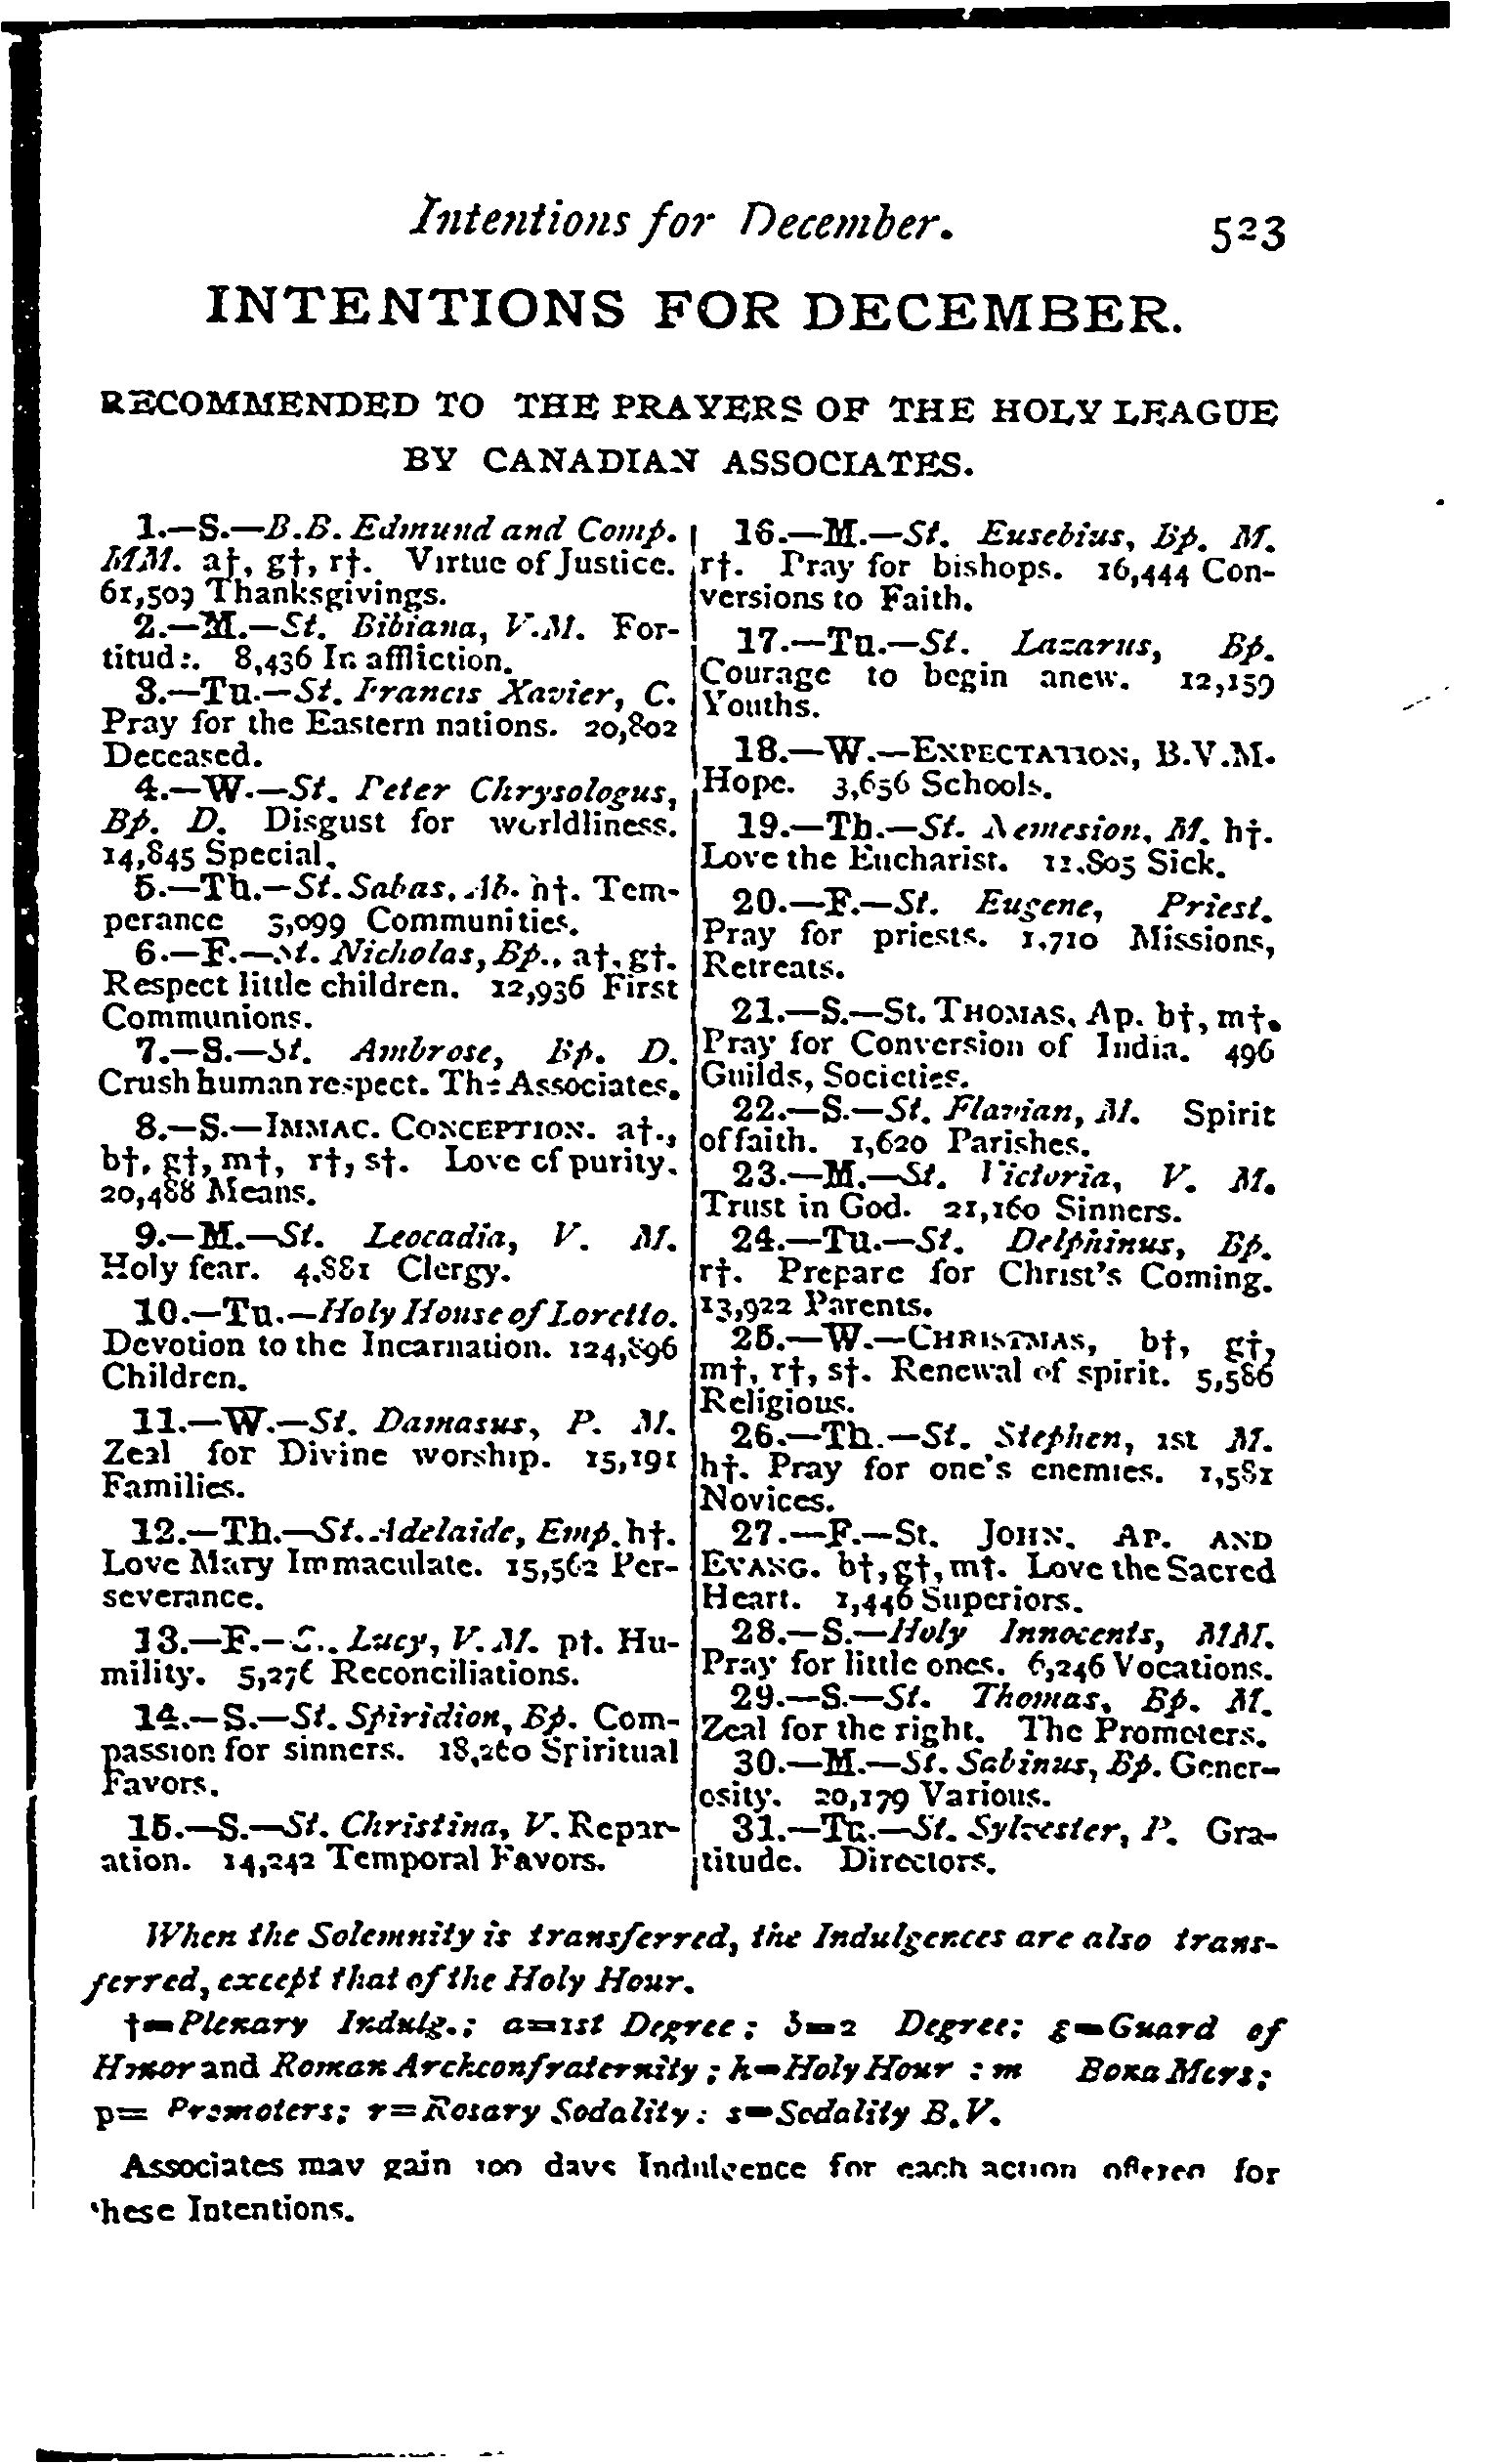 Intentions for December. 523
INTENTIONS FOR DECEMBER.
RECOMMENDED TO THE PRAYERS OF THE HOLY LEAGUE
BY CANADIAN ASSOCIATES.
1.—S.—B.B. Edmund and Comp.
MM. a†, g†, r†. Virtue of Justice.
61,509 Thanksgivings.
2.—M.—St. Bibiana, V.M. For-
titude. 8,436 In affliction.
3.—Tu.—St. Francis Xavier, C.
Pray for the Eastern nations. 20,802
Deceased.
4.—W.—St. Peter Chrysologus,
Bp. D. Disgust for worldliness.
14,845 Special.
5.—Th.—St. Sabas, Ab. h†. Tem-
perance 3,099 Communities.
6.—F.—St. Nicholas, Bp., a†, g†.
Respect little children. 12,936 First
Communions.
7.—S.—St. Ambrose, Bp. D.
Crush human respect. The Associates.
8.—S.—IMMAC. CONCEPTION. a†.,
b†, g†, m†, r†, s†. Love of purity.
20,488 Means.
9.—M.—St. Leocadia, V. M.
Holy fear. 4,881 Clergy.
10.—Tu.—Holy House of Loretto.
Devotion to the Incarnation. 124,896
Children.
11.—W.—St. Damasus, P. M.
Zeal for Divine worship. 15,191
Families.
12.—Th.—St. Adelaide, Emp. h†.
Love Mary Immaculate. 15,562 Per-
severance.
13.—F.— Lucy, V.M. p†. Hu-
mility. 5,276 Reconciliations.
14.—S.—St. Spiridion, Bp. Com-
passion for sinners. 18,260 Spiritual
Favors.
15.—S.—St. Christina, V. Repar-
ation. 14,242 Temporal Favors.
16.—M.—St. Eusebius, Bp. M.
r†. Pray for bishops. 16,444 Con-
versions to Faith.
17.—Tu.—St. Lazarus, Bp.
Courage to begin anew. 12,159
Youths.
18.—W.—EXPECTATION, B.V.M.
Hope. 3,656 Schools.
19.—Th.—St. Nemesion, M. h†.
Love the Eucharist. 11,805 Sick.
20.—F.—St. Eugene, Priest.
Pray for priests. 1,710 Missions,
Retreats.
21.—S.—St. THOMAS, Ap. b†, m†.
Pray for Conversion of India. 496
Guilds, Societies.
22.—S.—St. Flavian, M. Spirit
of faith. 1,620 Parishes.
23.—M.—St. Victoria, V. M.
Trust in God. 21,160 Sinners.
24.—Tu.—St. Delphinus, Bp.
r†. Prepare for Christ's Coming.
13,922 Parents.
25.—W.—CHRISTMAS, b†, g†,
m†, r†, s†. Renewal of spirit. 5,586
Religious.
26.—Th.—St. Stephen, 1st M.
h†. Pray for one's enemies. 1,581
Novices.
27.—F.—St. JOHN, AP. AND
EVANG. b†, g†, m†. Love the Sacred
Heart. 1,446 Superiors.
28.—S.—Holy Innocents, MM.
Pray for little ones. 6,246 Vocations.
29.—S.—St. Thomas, Bp. M.
Zeal for the right. The Promoters.
30.—M.—St. Sabinus, Bp. Gener-
osity. 20,179 Various.
31.—Tu.—St. Sylvester, P. Gra-
titude. Directors.
When the Solemnity is transferred, the Indulgences are also trans-
ferred, except that of the Holy Hour.
†=Plenary Indulg.; a=1st Degree; b=2 Degree; g=Guard of
Honor and Roman Archconfraternity; h=Holy Hour: m Bona Mors;
p= Promoters; r=Rosary Sodality: s=Sodality B.V.
Associates may gain 100 days Indulgence for each action offered for
these Intentions.